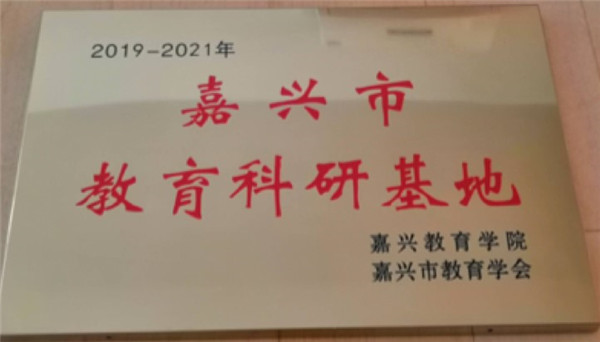 2019-2021年
嘉兴市
教育科研基地
嘉兴教育学院
嘉兴市教育学会